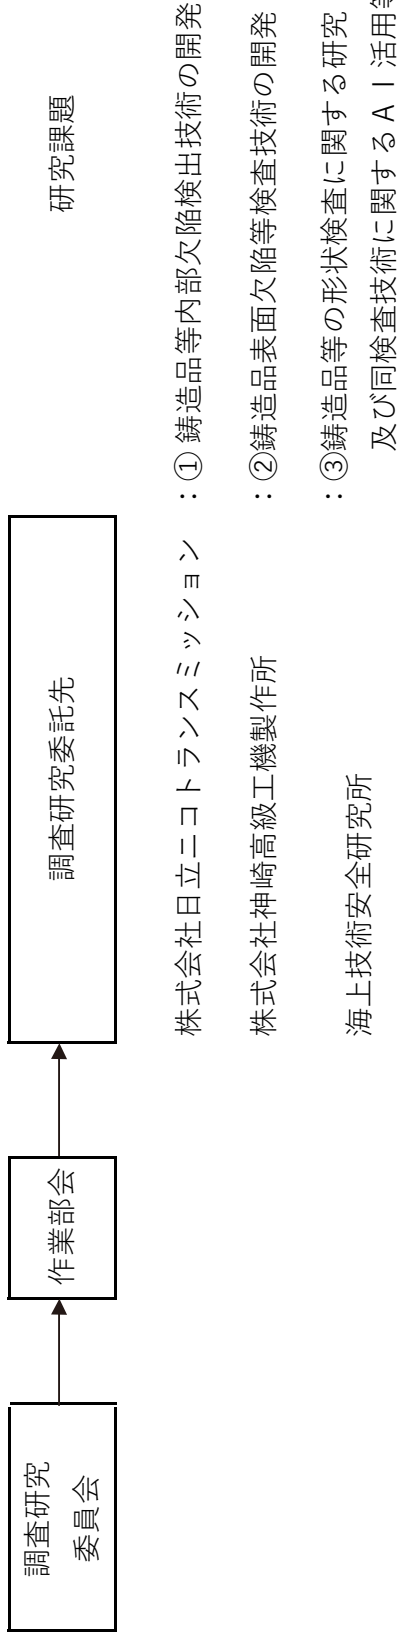 調査研究
委員会
作業部会
調査研究委託先
研究課題
株式会社日立ニコトランスミッション :① 鋳造品等内部欠陥検出技術の開発
株式会社神崎高級工機製作所 :②鋳造品表面欠陥等検査技術の開発
海上技術安全研究所 :③鋳造品等の形状検査に関する研究
及び同検査技術に関するAI活用等